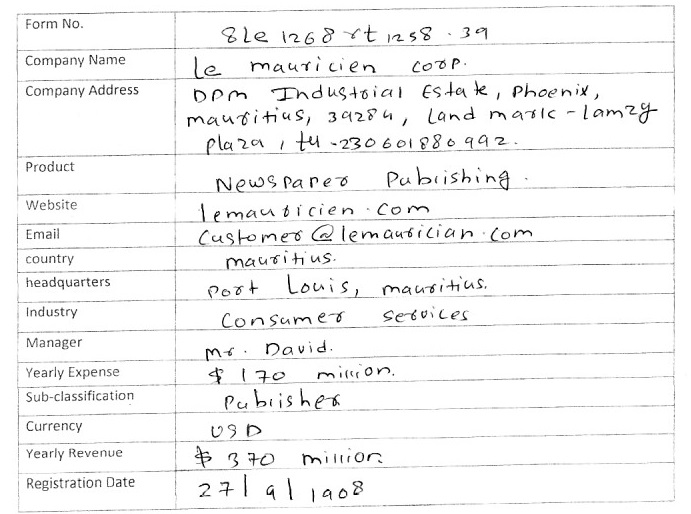 Form No. 8le 1268 rt 1258 . 39
Company Name le mauricien corp.
Company Address DPM Industrial Estate, Phoenix,
mauritius, 39284, Land mark - lamzy
plaza, tel -230601880992.
Product Newspaper Publishing.
Website lemauricien.com
Email Customer@lemaurician.com
country mauritius.
headquarters port Louis, mauritius.
Industry Consumer services
Manager mr. David.
Yearly Expense $ 170 million.
Sub-classification Publisher
Currency USD
Yearly Revenue $ 370 million
Registration Date 27/9/1908